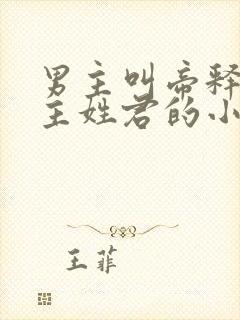 男主叫帝释
主姓君的小
王菲